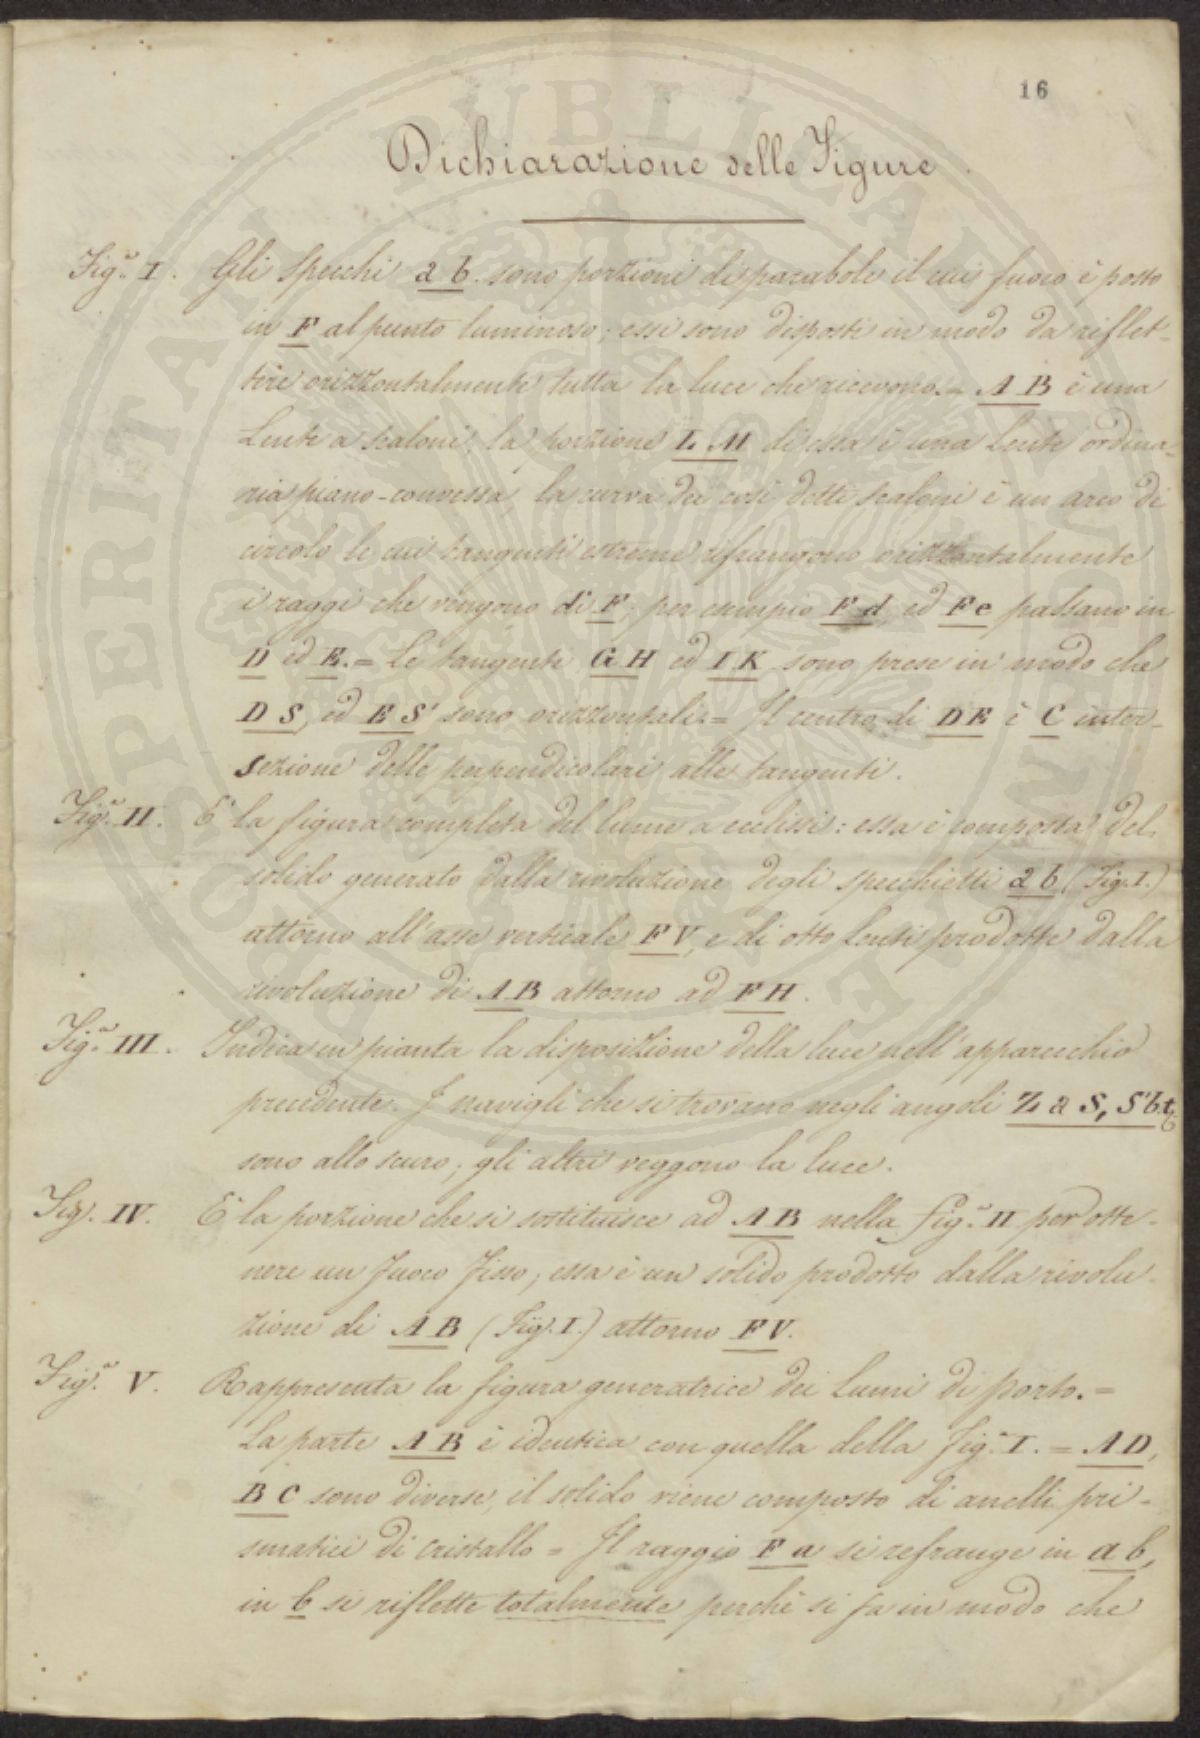 16
Dichiarazione delle Figure
Fig.ª I. Gli Specchi a b. sono porzioni di parabole il cui fuoco è posto
in F al punto luminoso; essi sono disposti in modo da riflet-
tere orizzontalmente tutta la luce che ricevono. = A B è una
Lente a scaloni, la porzione L M di essa è una Lente ordina-
ria piano-convessa, la curva dei così detti scaloni è un arco di
circolo le cui tangenti estreme rifrangono orizzontalmente
i raggi che vengono di F; per esempio F d ed F e passano in
D ed E. = Le tangenti G H ed I K sono prese in modo che
D S, ed E S' sono orizzontali. = Il centro di D E è C inter-
sezione delle perpendicolari alle tangenti.
Fig.ª II. È la figura completa del lume a ecclissi: essa è composta del
solido generato dalla rivoluzione degli specchietti a b (Fig. I.)
attorno all'asse verticale F V, e di otto Lenti prodotte dalla
rivoluzione di A B attorno ad F H.
Fig.ª III. Indica in pianta la disposizione della luce nell'apparecchio
precedente. I navigli che si trovano negli angoli Z a S, S' b t
sono allo scuro; gli altri veggono la luce.
Fig. IV. È la porzione che si sostituisce ad A B nella fig.ª II per otte-
nere un fuoco fisso; essa è un solido prodotto dalla rivolu-
zione di A B (Fig. I.) attorno F V.
Fig.ª V. Rappresenta la figura generatrice dei Lumi di porto. =
La parte A B è identica con quella della fig.ª I. = A D,
B C sono diverse, il solido viene composto di anelli pri-
smatici di cristallo = Il raggio F a si refrange in a b,
in b si riflette totalmente perchè si fa in modo che
PROSPERITATI PUBLICAE